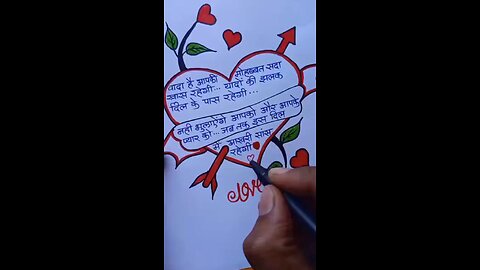 वादा है आपकी मोहब्बत सदा
खास रहेगी... यादों की झलक
दिल के पास रहेगी...
नही भुलाऐंगे आपको और आपके
प्यार को... जब तक इस दिल
में आखरी सांस
रहेगी
Love